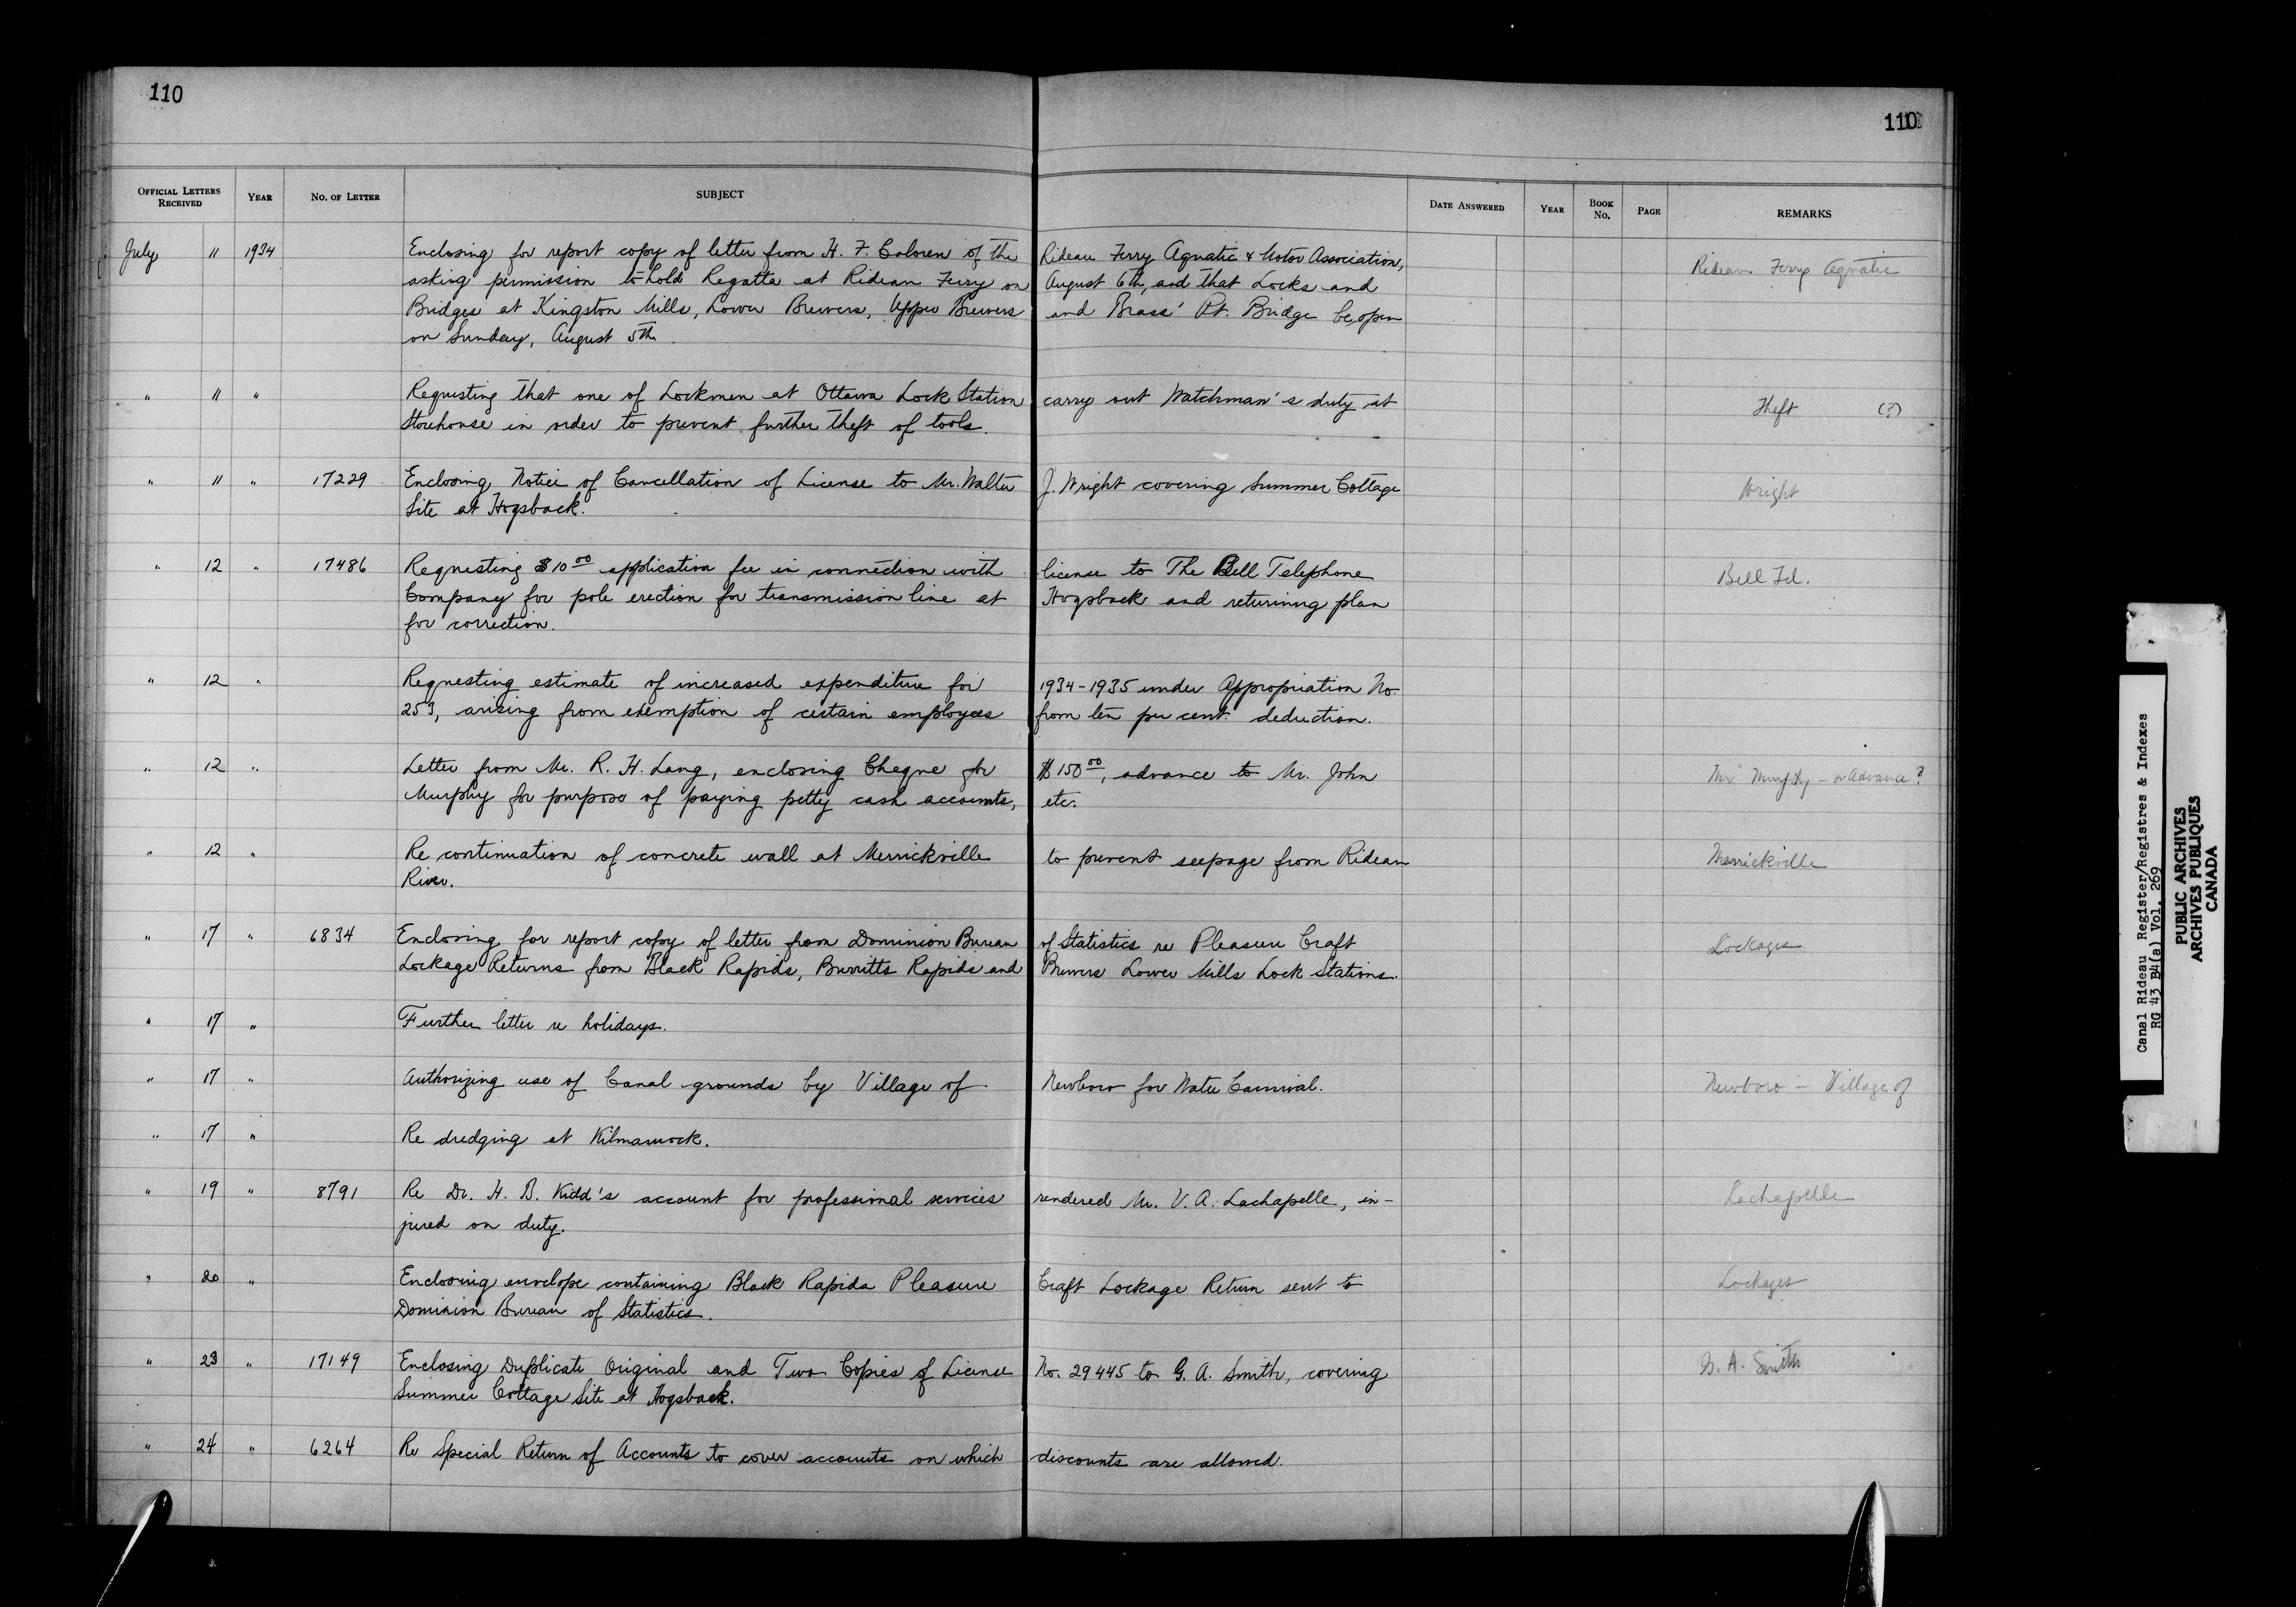 110
110
OFFICIAL LETTERS RECEIVED YEAR NO. OF LETTER SUBJECT DATE ANSWERED YEAR BOOK NO. PAGE REMARKS
July 11 1934 Enclosing for report copy of letter from H. F. of the Rideau Ferry Aquatic & Motor Association, Rideau Ferry Aquatic
asking permission to hold Regatta at Rideau Ferry on August 6th, and that Locks and
Bridges at Kingston Mills, Lower Brewers, Upper Brewers and Brass' Pt. Bridge be open
on Sunday, August 5th.
" 11 " Requesting that one of Lockmen at Ottawa Lock Station carry out Watchman's duty at Theft (?)
Storehouse in order to prevent further theft of tools.
" 11 " 17229 Enclosing Notice of Cancellation of License to Mr. Walter J. Wright covering Summer Cottage Wright
Site at Hogsback.
" 12 " 17486 Requesting $10 00 application fee in connection with license to The Bell Telephone Bell Tel.
Company for pole erection for transmission line at Hogsback and returning plan
for correction.
" 12 " Requesting estimate of increased expenditure for 1934-1935 under Appropriation No.
253, arising from exemption of certain employees from ten per cent. deduction.
" 12 " Letter from Mr. R. H. Lang, enclosing Cheque for $150 00, advance to Mr. John Mr Murphy - or Advance?
Murphy for purpose of paying petty cash accounts, etc.
" 12 " Re continuation of concrete wall at Merrickville to prevent seepage from Rideau Merrickville
River.
" 17 " 6834 Enclosing for report copy of letter from Dominion Bureau of Statistics re Pleasure Craft Lockages
Lockage Returns from Black Rapids, Burritts Rapids and Brewers Lower Mills Lock Stations.
" 17 " Further letter re holidays.
" 17 " Authorizing use of Canal grounds by Village of Newboro for Water Carnival. Newboro - Village of
" 17 " Re dredging at Kilmarnock.
" 19 " 8791 Re Dr. H. B. Kidd's account for professional services rendered Mr. V. A. Lachapelle, in- Lachapelle
jured on duty.
" 20 " Enclosing envelope containing Black Rapids Pleasure Craft Lockage Return sent to Lockages
Dominion Bureau of Statistics.
" 23 " 17149 Enclosing Duplicate Original and Two Copies of License No. 29445 to G. A. Smith, covering G. A. Smith
Summer Cottage Site at Hogsback.
" 24 " 6264 Re Special Return of Accounts to cover accounts on which discounts are allowed.
Canal Rideau Register/Registres & Indexes
RG 43 B4(a) Vol. 269
PUBLIC ARCHIVES
ARCHIVES PUBLIQUES
CANADA